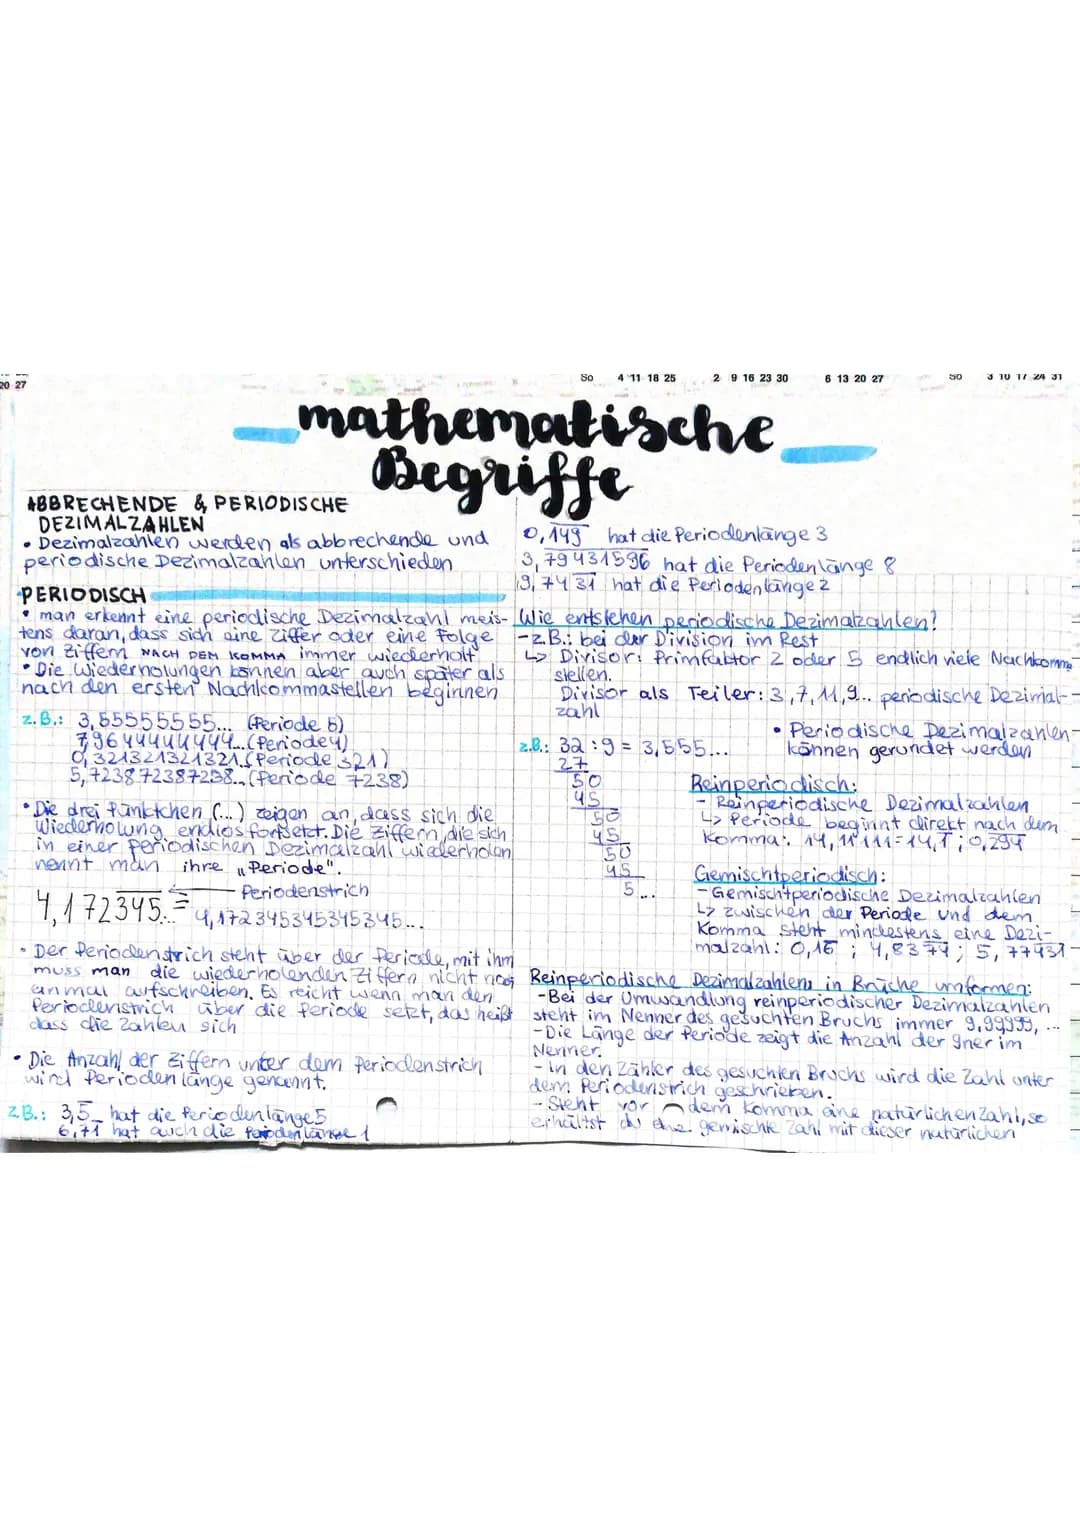 20 27
So 4 11 18 25 2 9 16 23 30 6 13 20 27 So 3 10 17 24 31
mathematische
Begriffe
ABBRECHENDE & PERIODISCHE
DEZIMALZAHLEN
• Dezimalzahlen werden als abbrechende und
periodische Dezimalzahlen unterschieden
PERIODISCH
• man erkennt eine periodische Dezimalzahl meis-
tens daran, dass sich eine Ziffer oder eine Folge
von Ziffern NACH DEM KOMMA immer wiederholt
• Die Wiederholungen können aber auch später als
nach den ersten Nachkommastellen beginnen
z.B.: 3,555555555... (Periode 5)
7,96444444444... (Periode 4)
0,321321321321. (Periode 321)
5,723872387238... (Periode 7238)
• Die drei Pünktchen (...) zeigen an, dass sich die
Wiederholung endlos fortsetzt. Die Ziffern, die sich
in einer periodischen Dezimalzahl wiederholen
nennt man ihre "Periode".
Periodenstrich
4,172345... = 4,172345345345345....
• Der Periodenstrich steht über der Periode, mit ihm
muss man die wiederholenden Ziffern nicht noch
einmal aufschreiben. Es reicht wenn man den
Periodenstrich über die Periode setzt, das heißt
dass die Zahlen sich
• Die Anzahl der Ziffern unter dem Periodenstrich
wird Periodenlänge genannt.
z.B.: 3,5 hat die Periodenlänge 5
6,71 hat auch die Periodenlänge 1
0,149 hat die Periodenlänge 3
3,79431596 hat die Periodenlänge 8
9,7431 hat die Periodenlänge 2
Wie entstehen periodische Dezimalzahlen?
- z.B.: bei der Division im Rest
↳ Divisor: Primfaktor 2 oder 5 endlich viele Nachkomma
stellen.
Divisor als Teiler: 3,7,11,9... periodische Dezimal-
zahl
• Periodische Dezimalzahlen
können gerundet werden
z.B.: 32 : 9 = 3,555...
27
50
45
50
45
50
45
5...
Reinperiodisch:
- Reinperiodische Dezimalzahlen
↳ Periode beginnt direkt nach dem
Komma: 14,11111=14,1 ; 0,294
Gemischtperiodisch:
- Gemischtperiodische Dezimalzahlen
↳ zwischen der Periode und dem
Komma steht mindestens eine Dezi-
malzahl: 0,16 ; 4,8374 ; 5,77431
Reinperiodische Dezimalzahlen in Brüche umformen:
- Bei der Umwandlung reinperiodischer Dezimalzahlen
steht im Nenner des gesuchten Bruchs immer 9,99999, ...
- Die Länge der Periode zeigt die Anzahl der 9ner im
Nenner.
- In den Zähler des gesuchten Bruchs wird die Zahl unter
dem Periodenstrich geschrieben.
- Steht vor dem Komma eine natürlichen Zahl, so
erhältst du eine gemischte Zahl mit dieser natürlichen